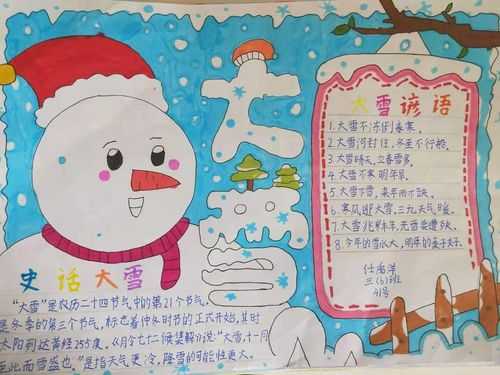 大雪
大雪谚语
1.大雪不冻倒春寒。
2.大雪河封住，冬至不行船。
3.大雪晴天，立春雪多。
4.大雪不寒明年旱。
5.大雪下雪，来年雨不缺。
6.寒风迎大雪，三九天气暖。
7.大雪兆丰年，无雪要遭殃。
8.今年的雪水大，明年的麦子好。
三(6)班
41号
史话大雪
"大雪"是农历二十四节气中的第21个节气，
是冬季的第三个节气，标志着仲冬时节的正式开始，其时
太阳到达黄经255度。《月令七十二候集解》说："大雪，十一月
至此而雪盛也。"是指天气更冷，降雪的可能性更大。